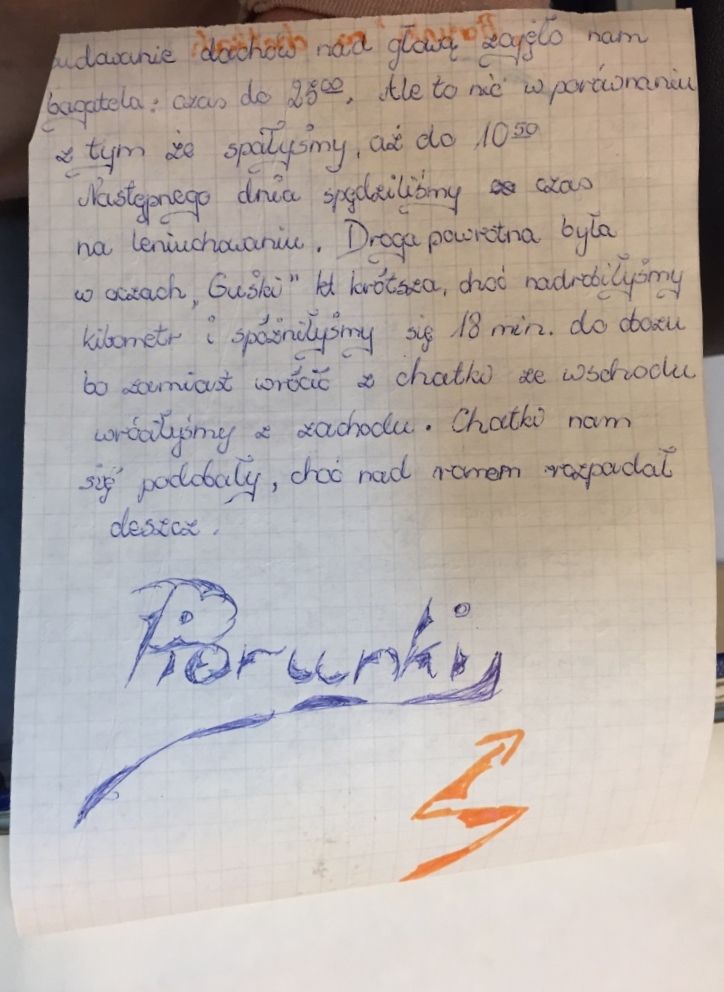 udawanie dachów nad głową zajęło nam
bagatela: czas do 23⁰⁰. Ale to nic w porównaniu
z tym że spałyśmy, aż do 10⁵⁰
Następnego dnia spędziliśmy czas
na leniuchowaniu. Droga powrotna była
w oczach „Guśki" krótsza, choć nadrobiłyśmy
kilometr i spóźniłyśmy się 18 min. do obozu
bo zamiast wrócić z chatki ze wschodu
wróciłyśmy z zachodu. Chatki nam
się podobały, choć nad ranem rozpadał
deszcz.
Piorunki